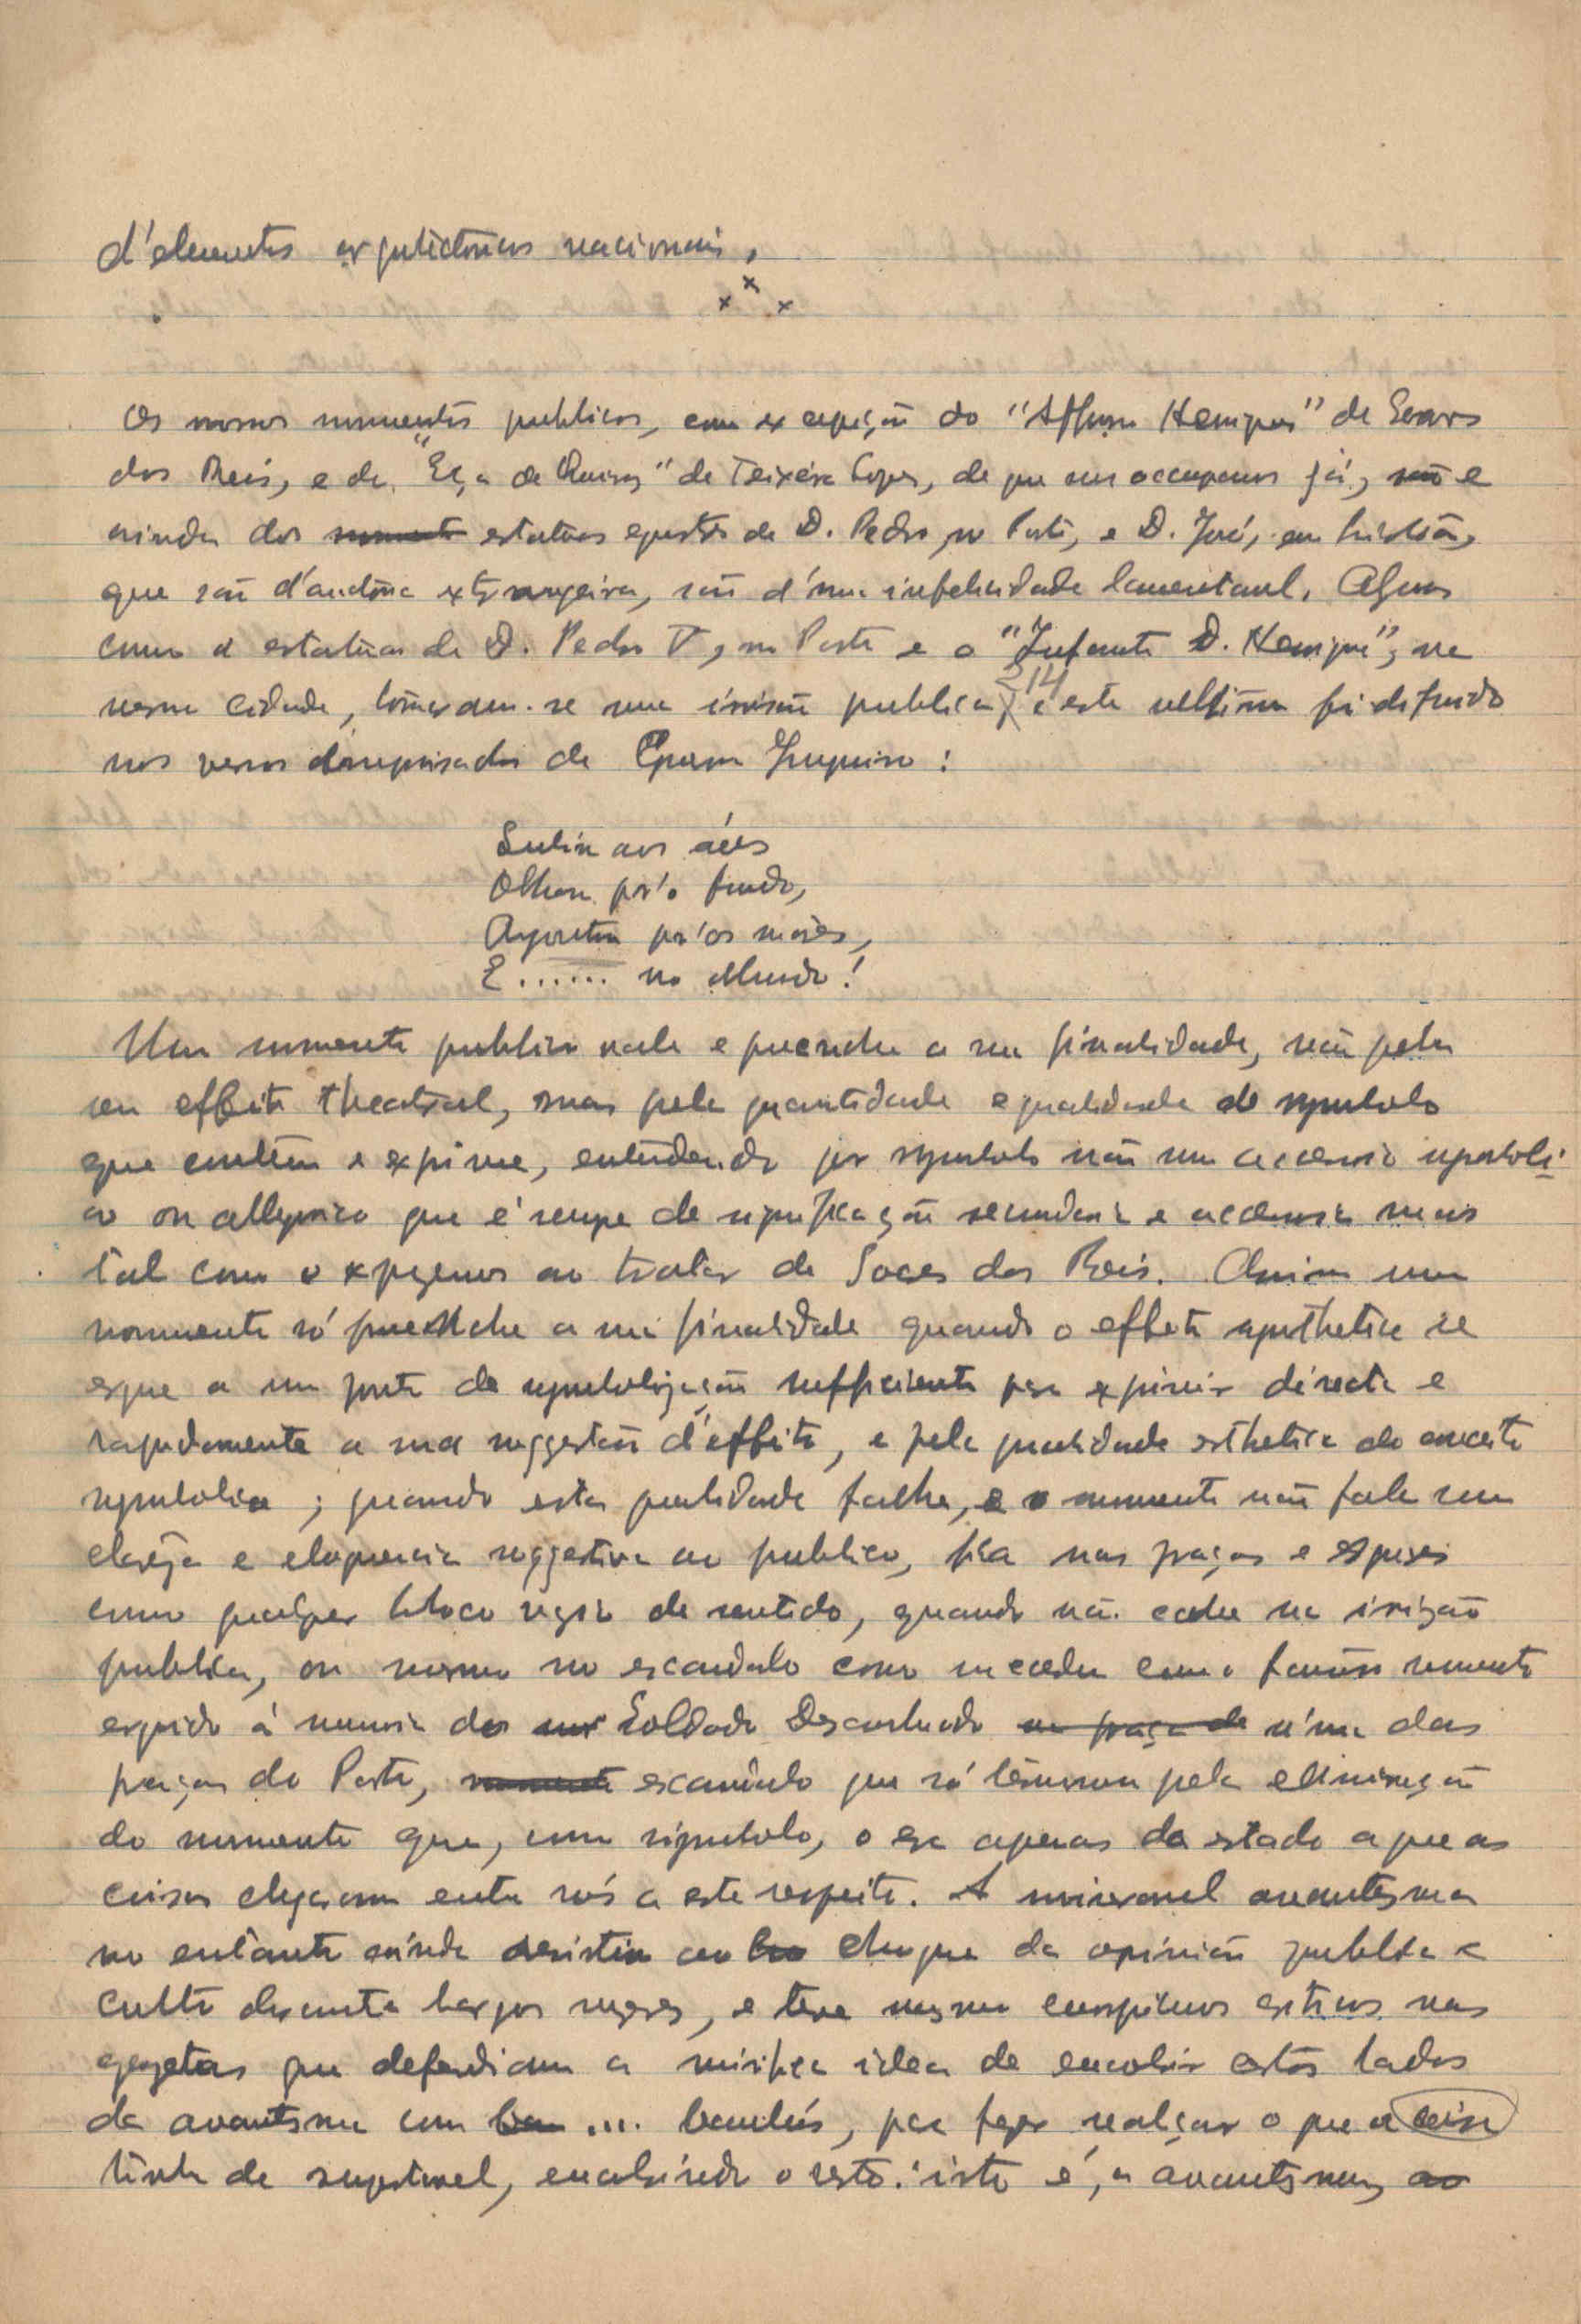 d'elementos arquitectonicos nacionais.
x x x
Os nossos monumentos publicos, com excepção do "Affonso Henriques" de Soares
dos Reis, e do "Eça de Queiroz" de Teixeira Lopes, de que nos occupamos já, e
ainda das estatuas equestres de D. Pedro, no Porto, e D. José, em Lisboa,
que são d'auctoria extrangeira, são d'uma infelicidade lamentavel. Alguns
como a estatua de D. Pedro V, no Porto e o "Infante D. Henrique", na
mesma cidade, tornaram-se uma irrisão publica 214 e este ultimo foi definido
nos versos de Guerra Junqueiro:
Subiu aos céus
Olhou pr'o fundo,
Apontou pr'os mares,
E ...... no Mundo!
Um monumento publico vale e preenche a sua finalidade, não pelo
seu effeito theatral, mas pela quantidade e qualidade de symbolo
que contém e exprime, entendendo por symbolo não um accessorio symboli-
co ou allegorico que é sempre de significação secundaria e accessoria mas
tal como o expozemos ao tratar de Soares dos Reis. Assim um
monumento só preenche a sua finalidade quando o effeito synthetico se
ergue a um ponto de symbolização sufficiente para exprimir directa e
rapidamente a sua suggestão d'effeito, e pela qualidade esthetica do conceito
symbolico; quando esta qualidade falha, e o monumento não fala com
clareza e eloquencia suggestiva ao publico, fica nas praças e
como qualquer bloco vazio de sentido, quando não cahe na irrizão
publica, ou mesmo no escandalo como succedeu com o famoso monumento
erguido á memoria do Soldado Desconhecido n'uma das
praças do Porto, escandalo que só terminou pela eliminação
do monumento que, como symbolo, o era apenas do estado a que as
coisas chegaram entre nós a este respeito. A miseravel avantesma
no entanto ainda resistiu ao choque da opinião publica e
culta durante largos mezes, e teve mesmo conspicuos criticos nas
gazetas que defendiam a mirifica idea de encobrir certos lados
da avantesma com ... bambús, para fazer realçar o que a coisa
tinha de suportavel, encobrindo o resto: isto é, a avantesma,